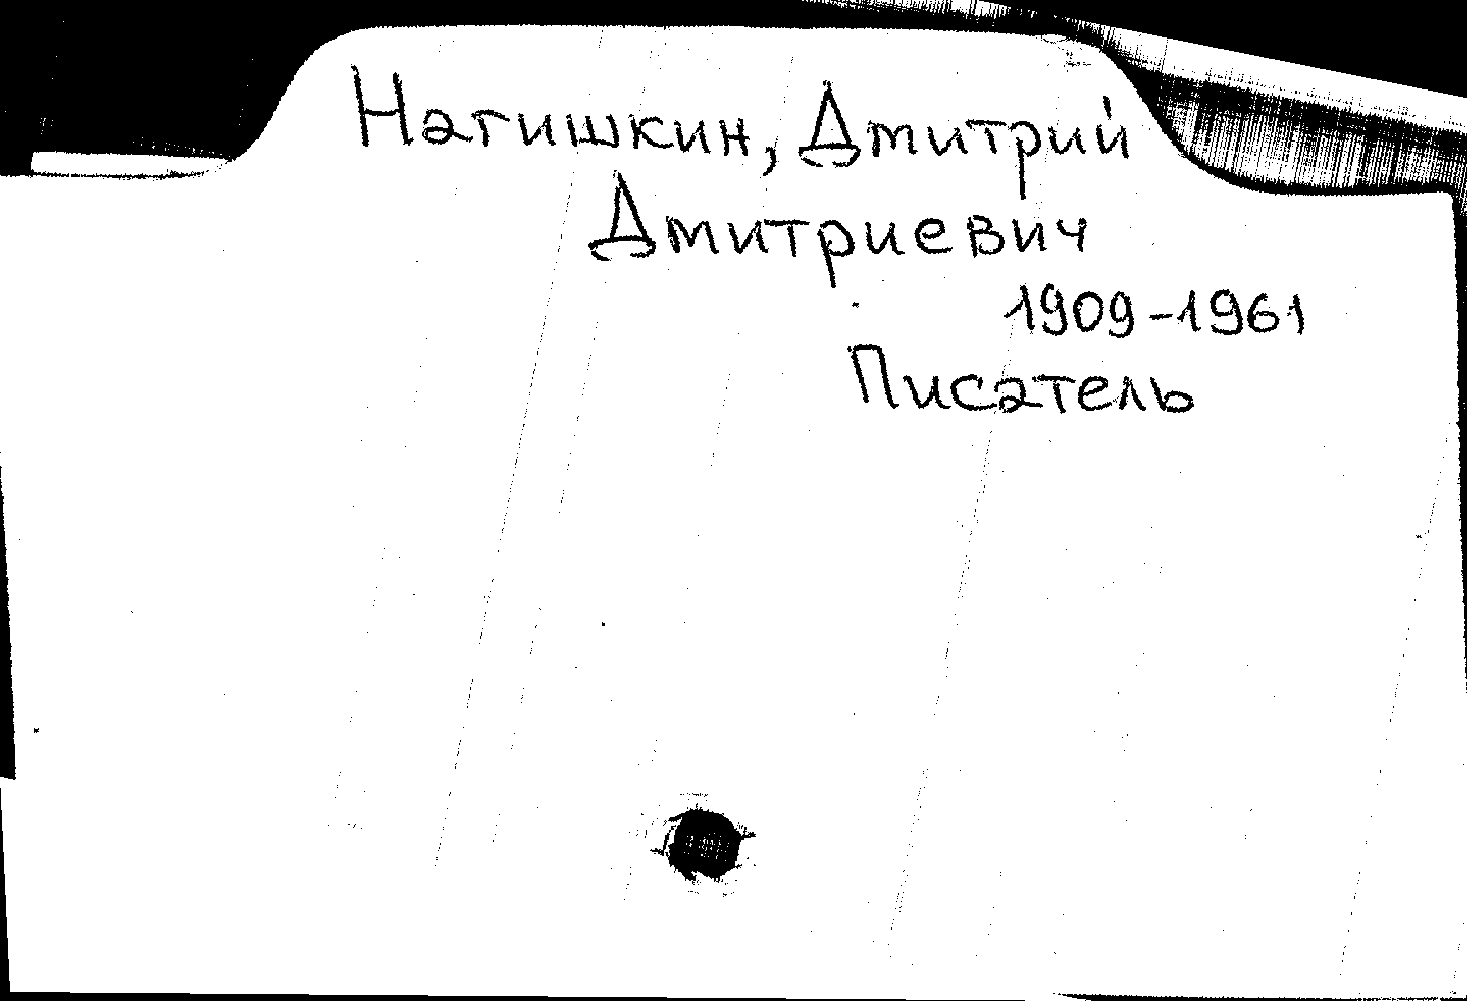 Нагишкин, Дмитрий
Дмитриевич
1909-1961
Писатель